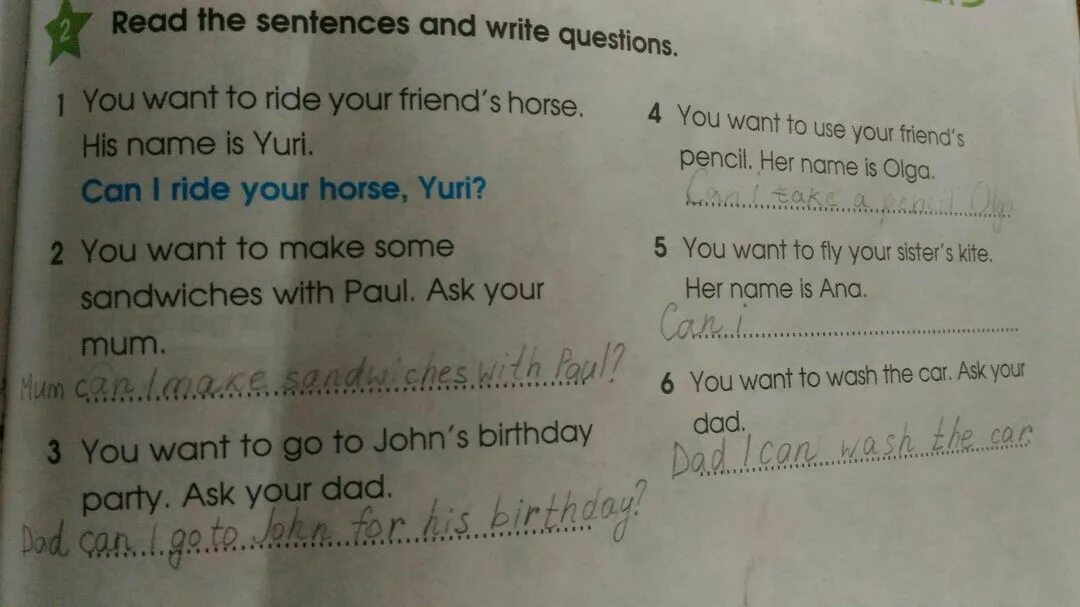 2 Read the sentences and write questions.
1 You want to ride your friend's horse.
His name is Yuri.
Can I ride your horse, Yuri?
2 You want to make some
sandwiches with Paul. Ask your
mum.
Mum can I make sandwiches with Paul?
3 You want to go to John's birthday
party. Ask your dad.
Dad can I go to John for his birthday?
4 You want to use your friend's
pencil. Her name is Olga.
Can I take a pensil Olga
5 You want to fly your sister's kite.
Her name is Ana.
Can i
6 You want to wash the car. Ask your
dad.
Dad I can wash the car